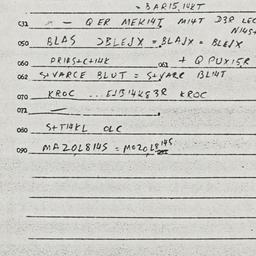 = BAR15,14KT
032 - - QER MEK14T M14T D3R LEC
N14S+
050 BLAS DBLEJX = BLAJX = BLEJX
060 DR18S+C+14K 061 + QPUX15R
062 S+VARCE BLUT = S+VARR BL14T
070 KROC ... EJB14K83R KROC
072
080 S+T14KL OLC
090 MAZOL8145 = MOZOL8145